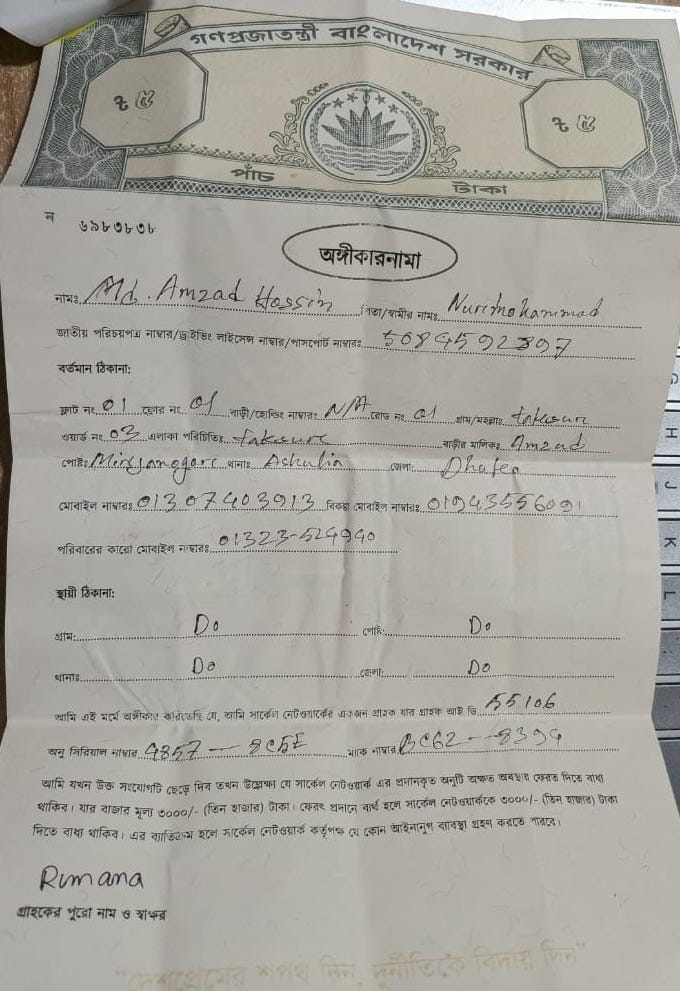 গণপ্রজাতন্ত্রী বাংলাদেশ সরকার
৳ ৫ ৳ ৫
পাঁচ টাকা
ন ৬৯৮৩৮৩৮
অঙ্গীকারনামা
নামঃ Md. Amzad Hossin পিতা/স্বামীর নামঃ Nurmohammad
জাতীয় পরিচয়পত্র নাম্বার/ড্রাইভিং লাইসেন্স নাম্বার/পাসপোর্ট নাম্বারঃ 5084592897
বর্তমান ঠিকানা:
ফ্ল্যাট নং 01 ফ্লোর নং 01 বাড়ী/হোল্ডিং নাম্বারঃ N/A রোড নং 01 গ্রাম/মহল্লাঃ takasure
ওয়ার্ড নং 03 এলাকা পরিচিতিঃ takasure বাড়ীর মালিকঃ Amzad
পোষ্টঃ Mirzanagare থানাঃ Ashulia জেলা: Dhaka
মোবাইল নাম্বারঃ 01307403913 বিকল্প মোবাইল নাম্বারঃ 01943556091
পরিবারের কারো মোবাইল নাম্বারঃ 01323-524940
স্থায়ী ঠিকানা:
গ্রাম: Do পোষ্ট: Do
থানাঃ Do জেলা: Do
আমি এই মর্মে অঙ্গীকার করিতেছি যে, আমি সার্কেল নেটওয়ার্কের একজন গ্রাহক যার গ্রাহক আই ডি 55106
অনু সিরিয়াল নাম্বার 4857 — 8C5E ম্যাক নাম্বার BC62--8394
আমি যখন উক্ত সংযোগটি ছেড়ে দিব তখন উল্লেখ্য যে সার্কেল নেটওয়ার্ক এর প্রদানকৃত অনুটি অক্ষত অবস্থায় ফেরত দিতে বাধ্য
থাকিব। যার বাজার মূল্য ৩০০০/- (তিন হাজার) টাকা। ফেরৎ প্রদানে ব্যর্থ হলে সার্কেল নেটওয়ার্ককে ৩০০০/- (তিন হাজার) টাকা
দিতে বাধ্য থাকিব। এর ব্যতিক্রম হলে সার্কেল নেটওয়ার্ক কর্তৃপক্ষ যে কোন আইনানুগ ব্যবস্থা গ্রহণ করতে পারবে।
Rumana
গ্রাহকের পুরো নাম ও স্বাক্ষর
"দেশপ্রেমের শপথ নিন, দুর্নীতিকে বিদায় দিন"
H
J
K
L